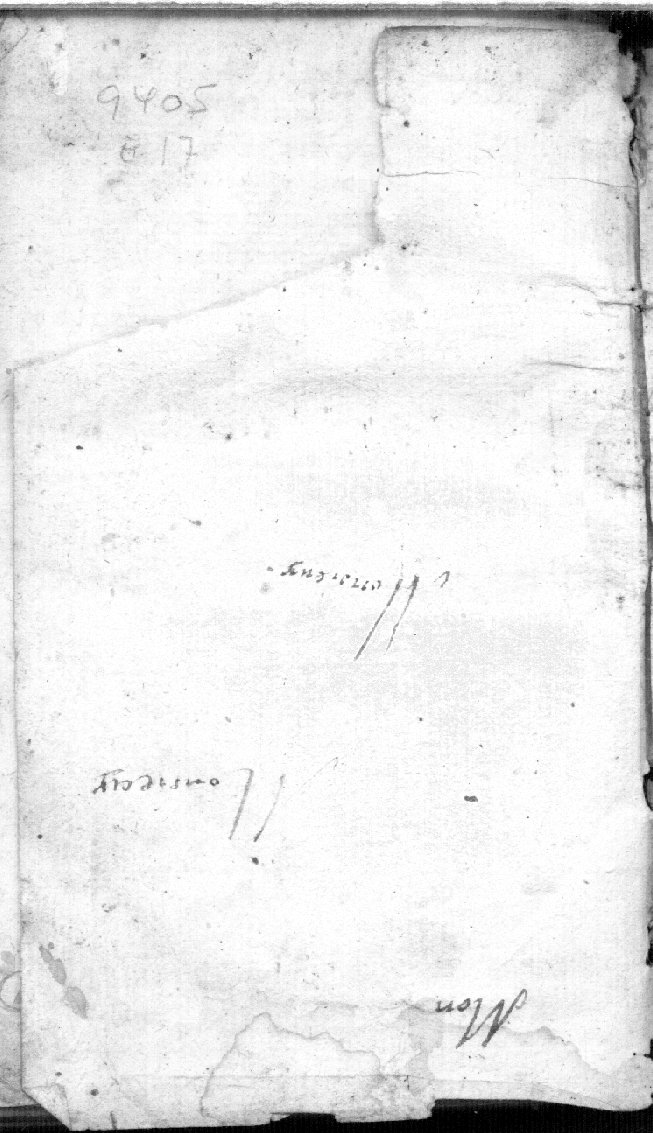 9405
E 17
Monsieur
Monsieur
Mon